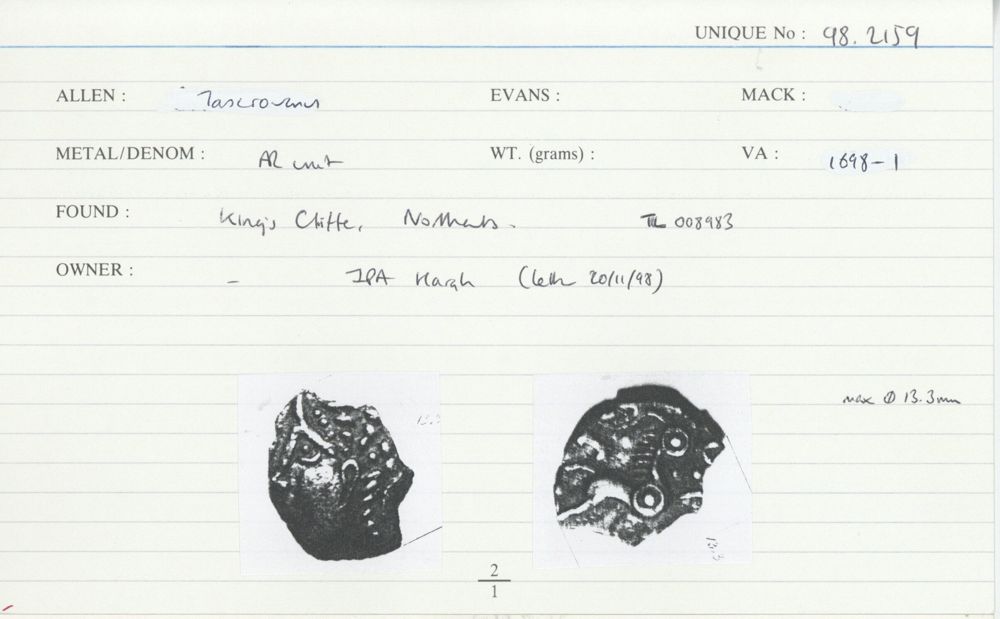 UNIQUE No : 98.2159
ALLEN : Tasciovanus EVANS : MACK :
METAL/DENOM : AR unit WT. (grams) : VA : 1698-1
FOUND : King's Cliffe, Northants. 008983
OWNER : - JPA (lett 20/11/98)
max Ø 13.3mm
13.3
2
1
13.3